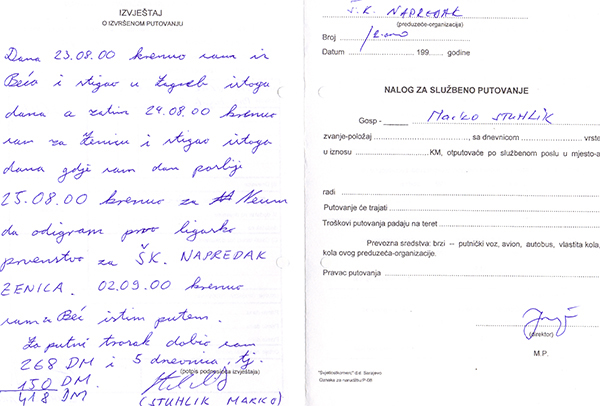 IZVJEŠTAJ
O IZVRŠENOM PUTOVANJU
Dana 23.08.00 krenuo sam iz
Beča i stigao u Zagreb istoga
dana a zatim 24.08.00 krenuo
sam za Zenicu i stigao istoga
dana gdje sam dan poslije
25.08.00 krenuo za Neum
da odigram prvo ligaško
prvenstvo za ŠK. NAPREDAK
ZENICA. 02.09.00 krenuo
sam za Beč istim putem.
Za putni trošak dobio sam
268 DM i 5 dnevnica, tj.
150 DM.
418 DM
(potpis podnosioca izvještaja)
(STUHLIK MARKO)
Š.K. NAPREDAK
(preduzeće-organizacija)
Broj
Datum 199 godine
NALOG ZA SLUŽBENO PUTOVANJE
Gosp - Marko STUHLIK
zvanje-položaj sa dnevnicom vrste
u iznosu KM, otputovaće po službenom poslu u mjesto-a
radi
Putovanje će trajati
Troškovi putovanja padaju na teret
Prevozna sredstva: brzi -- putnički voz, avion, autobus, vlastita kola,
kola ovog preduzeća-organizacije.
Pravac putovanja
(direktor)
M.P.
"Svjetlostkomerc" d.d. Sarajevo
Oznaka za narudžbu P-06